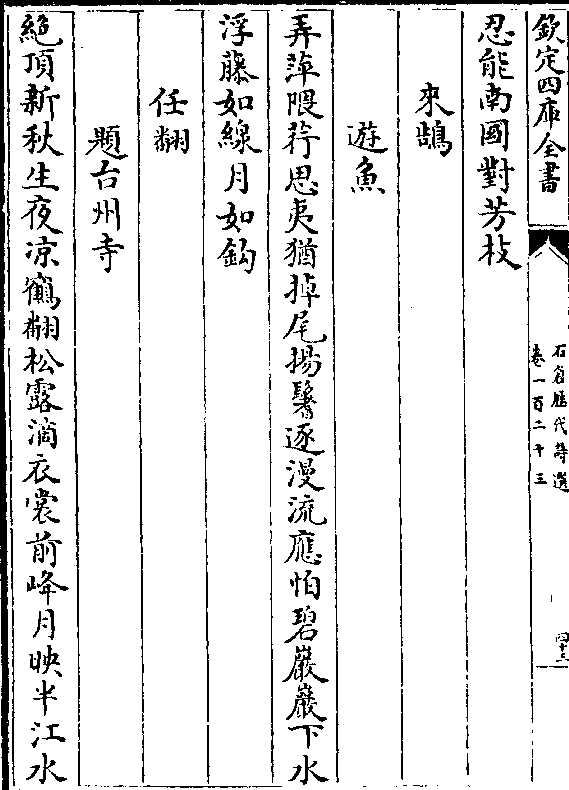 欽定四庫全書
石倉厯代詩選
卷一百二十三
四十三
忍能南國對芳枝
來鵠
遊魚
弄萍隈荇思夷猶掉尾揚鬐逐漫流應怕碧巖巖下水
浮藤如線月如鈎
任翻
題台州寺
絶頂新秋生夜凉鶴翻松露滴衣裳前峰月映半江水